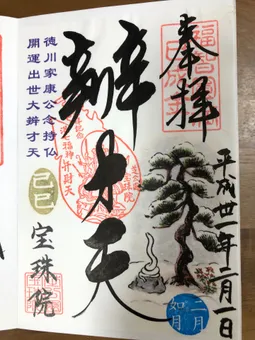 奉拝
平成卅一年二月一日
辨才天
二月
如月
徳川家康公念持仏
開運出世大辨才天
己巳
宝珠院